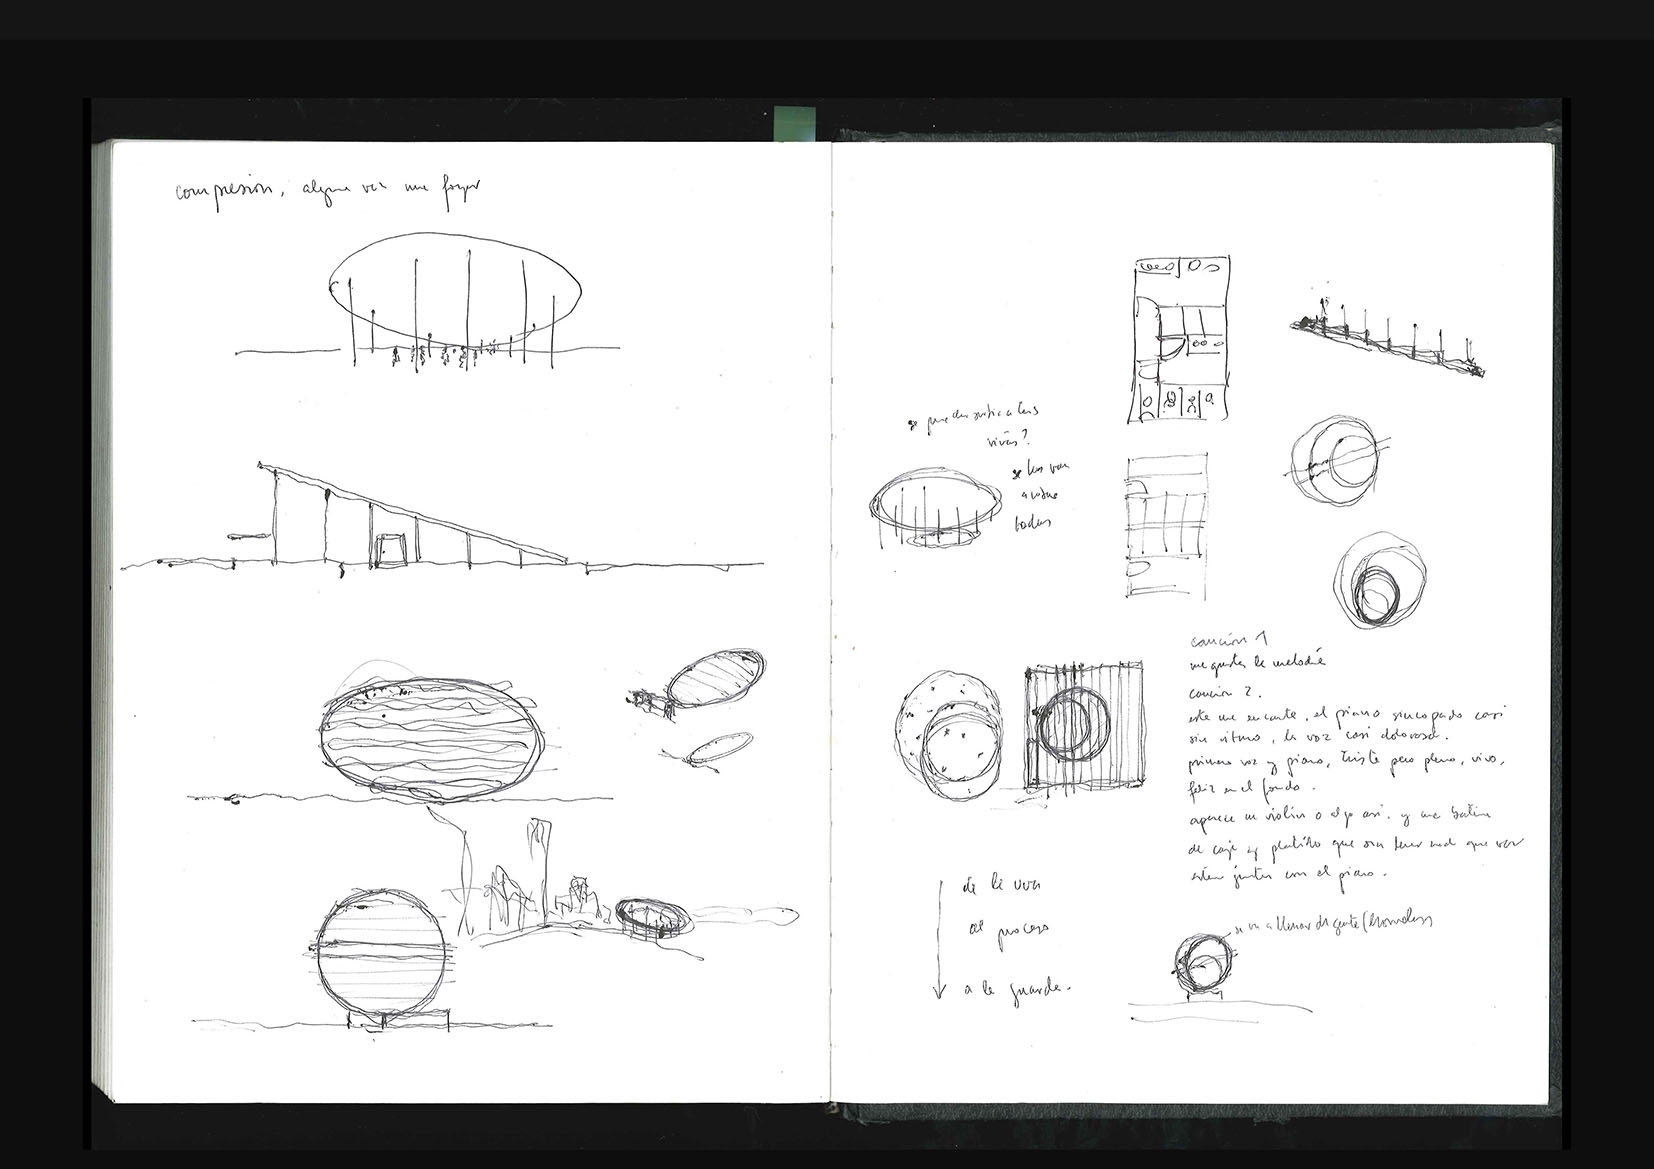 compresion, alguna vez une foyer
se pueden
vivas?
se las van
a
todas
canción 1
me gusta la melodía
canción 2.
este me encanta, el piano sincopado casi
sin ritmo, la voz casi dolorosa.
primero voz y piano, triste pero pleno, vivo,
feliz en el fondo.
aparece un violin o algo asi. y una
de caja y platillo que sin tener nada que ver
estan juntas con el piano.
de la uva
al proceso
a la guarda.
se va a llenar de gente (